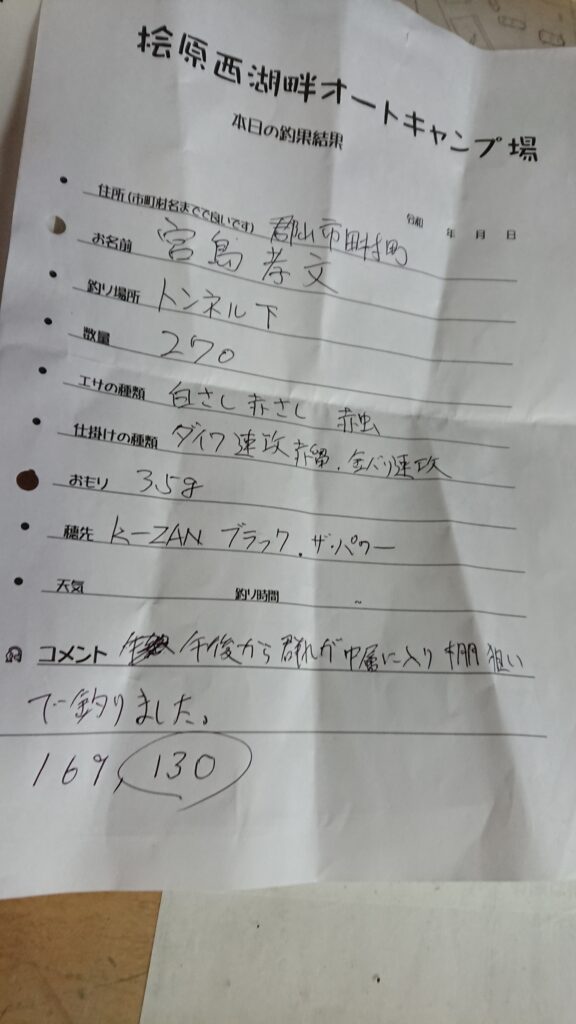 桧原西湖畔オートキャンプ場
本日の釣果結果
令和 年 月 日
住所(市町村名までで良いです) 郡山市田村町
お名前 宮島孝文
釣り場所 トンネル下
数量 270
エサの種類 白さし 赤さし 赤虫
仕掛けの種類 ダイワ速攻 赤留. 金バリ速攻
おもり 3.5g
穂先 K-ZAN ブラック. ザ・パワー
天気 釣り時間 ~
コメント 午後から群れが中層に入り棚狙い
で釣りました。
169, 130